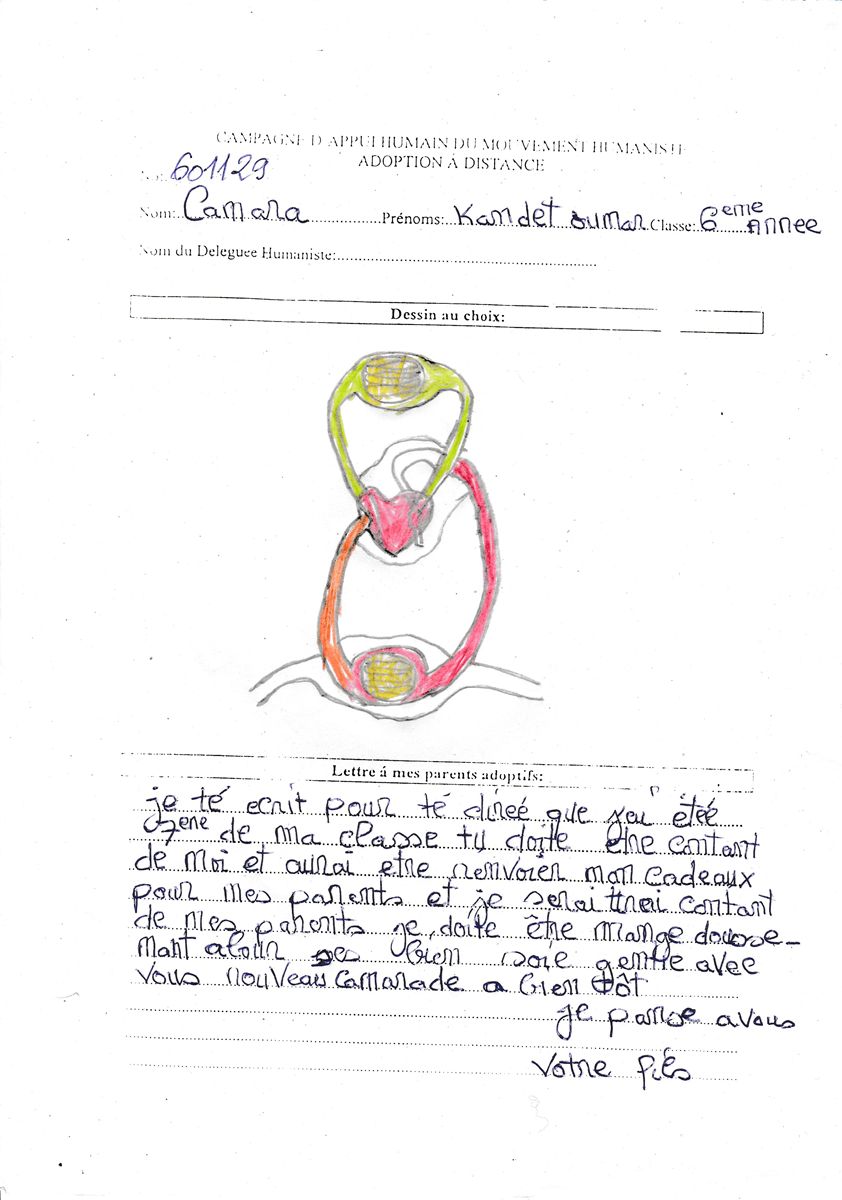 CAMPAGNE D'APPUI HUMAIN DU MOUVEMENT HUMANISTE
ADOPTION Á DISTANCE
No: 601129
Nom: Camara Prénoms: Kandet oumar Classe: 6eme Annee
Nom du Deleguee Humaniste:
Dessin au choix:
Lettre á mes parents adoptifs:
je té ecrit pour té direé que jai étéé
7ene de ma classe tu doite etre contant
de moi et etre renvoier mon cadeaux
pour mes parents et je contant
de mes parents je doite être mange dousse-
mant bien soie gentie avec
vous nouveau camarade a bien tôt
je panse avous
votre fils